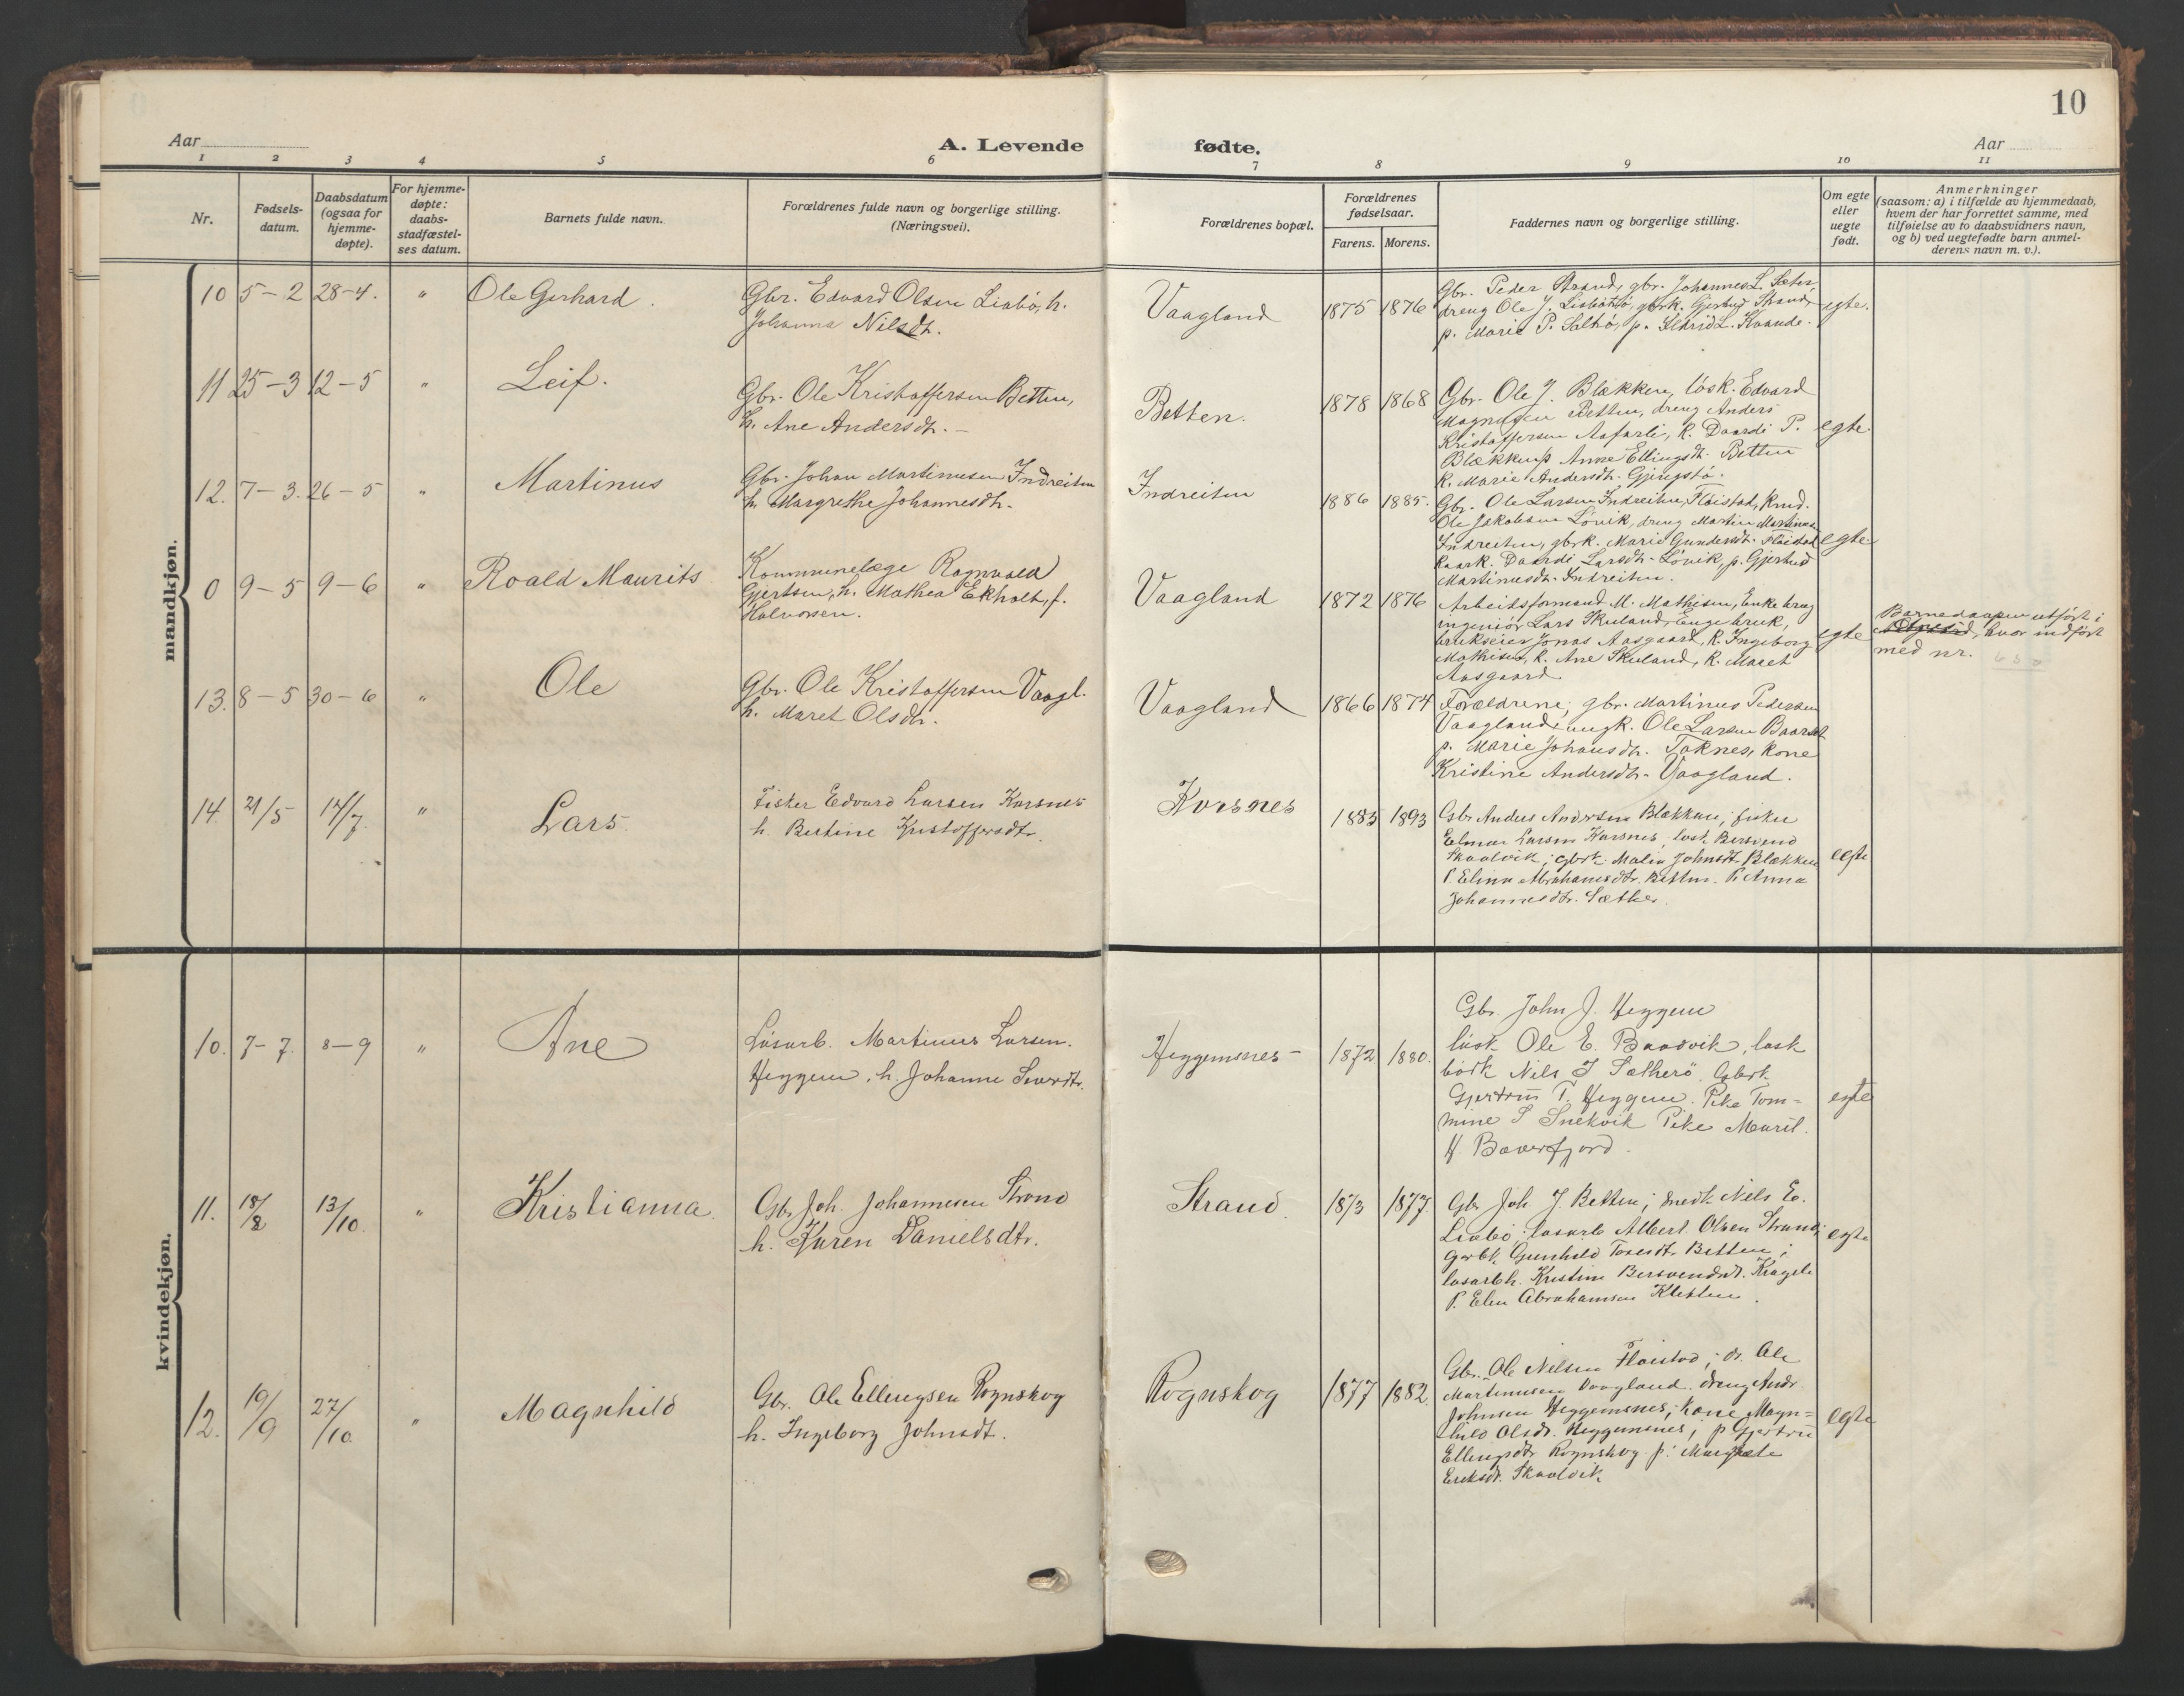 10
Aar
A. Levende
fødte.
Aar
1 2 3 4 5 6 7 8 9 10 11
Nr.
Fødsels-
datum.
Daabsdatum
(ogsaa for
hjemme-
døpte).
For hjemme-
døpte:
daabs-
stadfæstel-
ses datum.
Barnets fulde navn.
Forældrenes fulde navn og borgerlige stilling.
(Næringsvei).
Forældrenes bopæl.
Forældrenes
fødselsaar.
Farens. Morens.
Faddernes navn og borgerlige stilling.
Om egte
eller
uegte
født.
Anmerkninger
(saasom: a) i tilfælde av hjemmedaab,
hvem der har forrettet samme, med
tilføielse av to daabsvidners navn,
og b) ved uegtefødte barn anmel-
derens navn m. v.).
mandkjøn.
10 5-2 28-4. " Ole Gerhard.
Gbr. Edvard Olsen Liabö, h.
Johanna Nilsdtr.
Vaagland 1875 1876
Gbr. Peder Strand, gbr. Johannes L. Sæter,
dreng Ole J. gbrk. Gjertrud Strand,
p. Marie P. p.
egte.
11 25-3 12-5 " Leif.
Gbr. Ole Kristoffersen Betten,
h. Ane Andersdtr. -
Betten. 1878 1868
Gbr. Ole J. Blækken, løsk. Edvard
Magnusen Betten, dreng Anders
Kristoffersen Aafarli, k. Daardi P.
Blækken, p. Anne Ellingsdtr. Betten
k. Marie Andersdtr. Gjengstø.
egte.
12. 7-3. 26-5 " Martinus
Gbr. Johan Martinusen Indreiten
h. Margrethe Johannesdtr.
Indreiten 1886 1885.
Gbr. Ole Larsen Indreiten, Fløistad, Knud.
Ole Jakobsen Løvik, dreng Martin Martinusen
Indreiten, gbrk. Marie Gundersdtr. Fløistad
Daardi Larsdtr. Løvik, p. Gjertrud
Martinusdtr. Indreiten.
egte
0 9-5 9-6 " Roald Maurits
Kommunelæge Ragnvald
Gjertsen, h. Mathea Ekholt, f.
Halvorsen.
Vaagland 1872 1876
Arbeidsformand M. Mathisen, Enkebrug
ingeniør Lars Skuland, Engebruk,
brukseier Jonas Aasgaard, k. Ingeborg
Mathisen, k. Ane Skuland, k. Maret
Aasgaard.
egte
Barnedaapen utført i
hvor indført
med nr.
13. 8-5 30-6 " Ole
Gbr. Ole Kristoffersen Vaagl.
h. Maret Olsdtr.
Vaagland 1866 1874
Forældrene; gbr. Martinus Pedersen
Vaagland, ungk. Ole Larsen Baarset
p. Marie Johansdtr. Taknes, kone
Kristine Andersdtr. Vaagland.
14. 21/5 14/7. " Lars.
Fisker Edvard Larsen Korsnes
h. Bertine Kristoffersdtr.
Korsnes 1883 1893
Gbr Anders Andersen Blækken; fisker
Elmar Larsen Korsnes, løsk. Bersvend
Skaalvik; gbrk. Malin Johnsdt. Blækken
P. Elina Abrahamsdtr. Betten. P. Anna
Johannesdtr. Sæther.
egte
kvindekjøn.
10. 7-7. 8-9 " Ane
Løsarb. Martinus Larsen.
Heggem, h. Johanne Siversdtr.
Heggemsnes - 1872 1880.
Gbr. John J. Heggem
løsk Ole E. Baadvik, løsk
Nils J Sætherö. Gbrk.
Gjertrud T. Heggem. Pike Tom-
mine S Snekvik Pike Marit.
H. Bøverfjord.
egte
11. 18/8 13/10. " Kristianna.
Gbr Joh. Johannesen Strand
h. Karen Danielsdtr.
Strand. 1873 1877.
Gbr Joh. J. Betten; smedk Nils Ed.
Liabö; løsarb Albert Olsen Strand;
Gbrk Gunhild Toresdt. Betten;
løsarbh. Kristine Bersvendsdt.
P. Elen Abrahamsen
egte
12. 19/9 27/10. " Magnhild
Gbr. Ole Ellingsen Rognskog
h. Ingeborg Johnsdt.
Rognskog 1877 1882.
Gbr. Ole Nilsen Fløistad; dr. Ole
Martinusen Vaagland. dreng Andr.
Johnsen Heggemsnes; kone Magn-
hild Olsdt. Heggemsnes; p Gjertru
Ellingsdtr Rognskog p: Margrete
Eriksdt. Skaalvik
egte